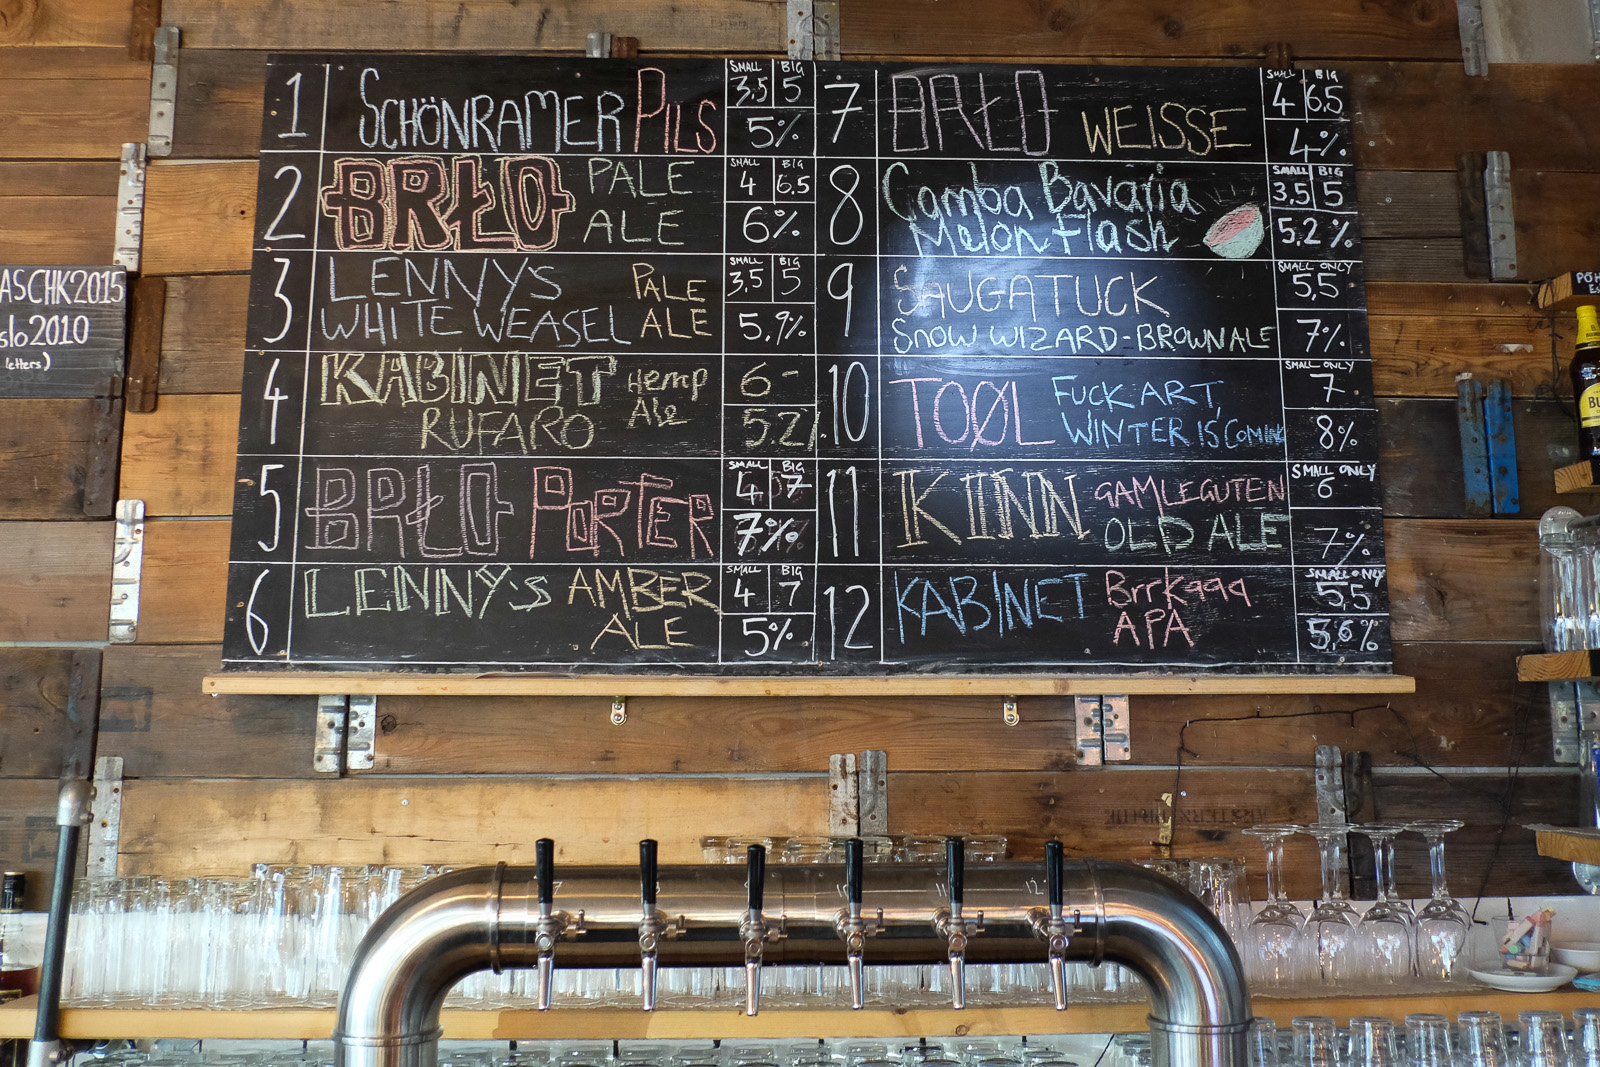 1
SCHÖNRAMER PILS
SMALL BIG
3,5 5
5%
2
BRŁO PALE
ALE
SMALL BIG
4 6.5
6%
3
LENNY'S PALE
WHITE WEASEL ALE
SMALL BIG
3,5 5
5.9%
4
KABINET Hemp
RUFARO Ale
6-
5.2%
5
BRŁO PORTER
SMALL BIG
4 7
7%
6
LENNY'S AMBER
ALE
SMALL BIG
4 7
5%
7
BRŁO WEISSE
SMALL BIG
4 6,5
4%
8
Camba Bavaria
Melon Flash
SMALL BIG
3,5 5
5,2%
9
SAUGATUCK
SNOW WIZARD-BROWN ALE
SMALL ONLY
5,5
7%
10
TOØL FUCK ART,
WINTER IS COMING
SMALL ONLY
7
8%
11
KINN GAMLEGUTEN
OLD ALE
SMALL ONLY
6
7%
12
KABINET Brrkaaa
APA
SMALL ONLY
5,5
5,6%
ASCHK2015
slo2010
letters)
PÖH
Es
BU
7 8 9 10 11 12